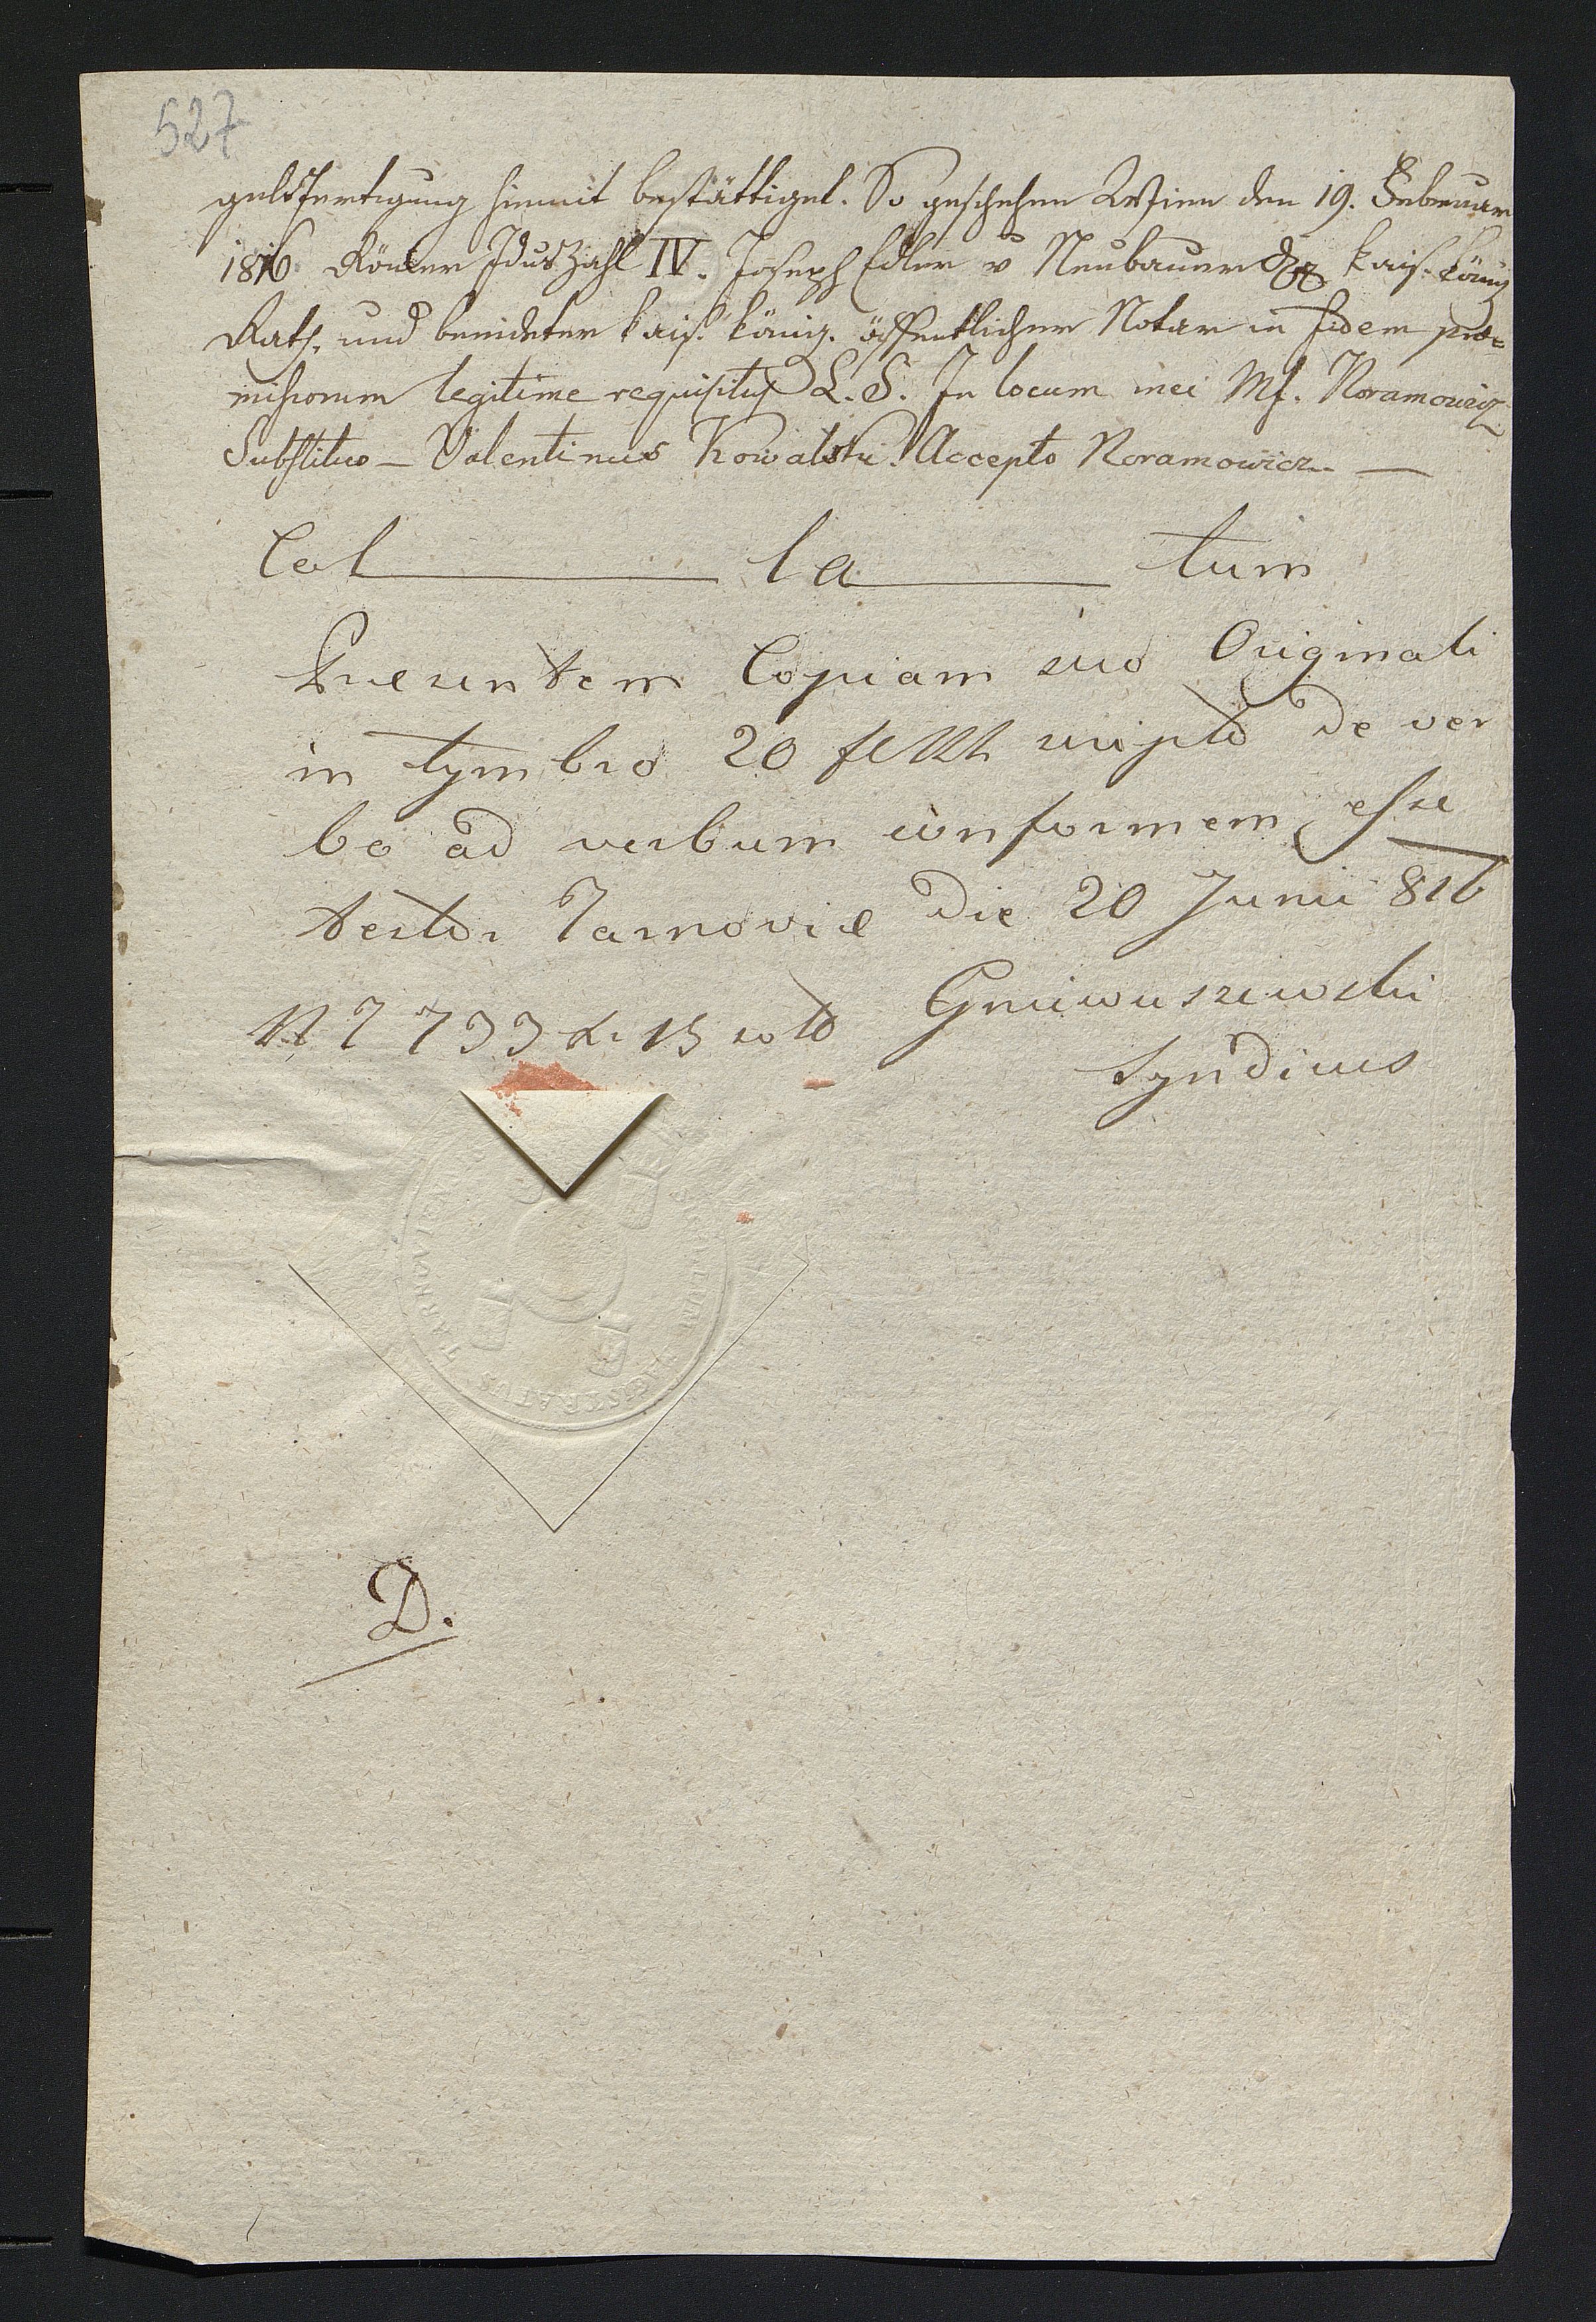 527
geldsfertigung hiemit bestättiget. So geschehen Wien den 19. Februar
1816 Römer Iduszahl IV. Joseph Edler v Neubauer kais. könig
Rath, und beeideter kais. könig. öffentlicher Notar in fidem præ-
missorum legitime requisitus L. S. In locum mei Noramowicz
Substituo – Valentinus Kowalski. Accepto Noramowicz. —
Col la tum
Præsentem Copiam suo Originali
in tymbro 20 scripto de ver
bo ad verbum conformem esse
testor Tarnoviæ die 20 Junii 816
Gniewuszewski
Syndicus
TARNOVIENSIS MAGISTRATUS
D.